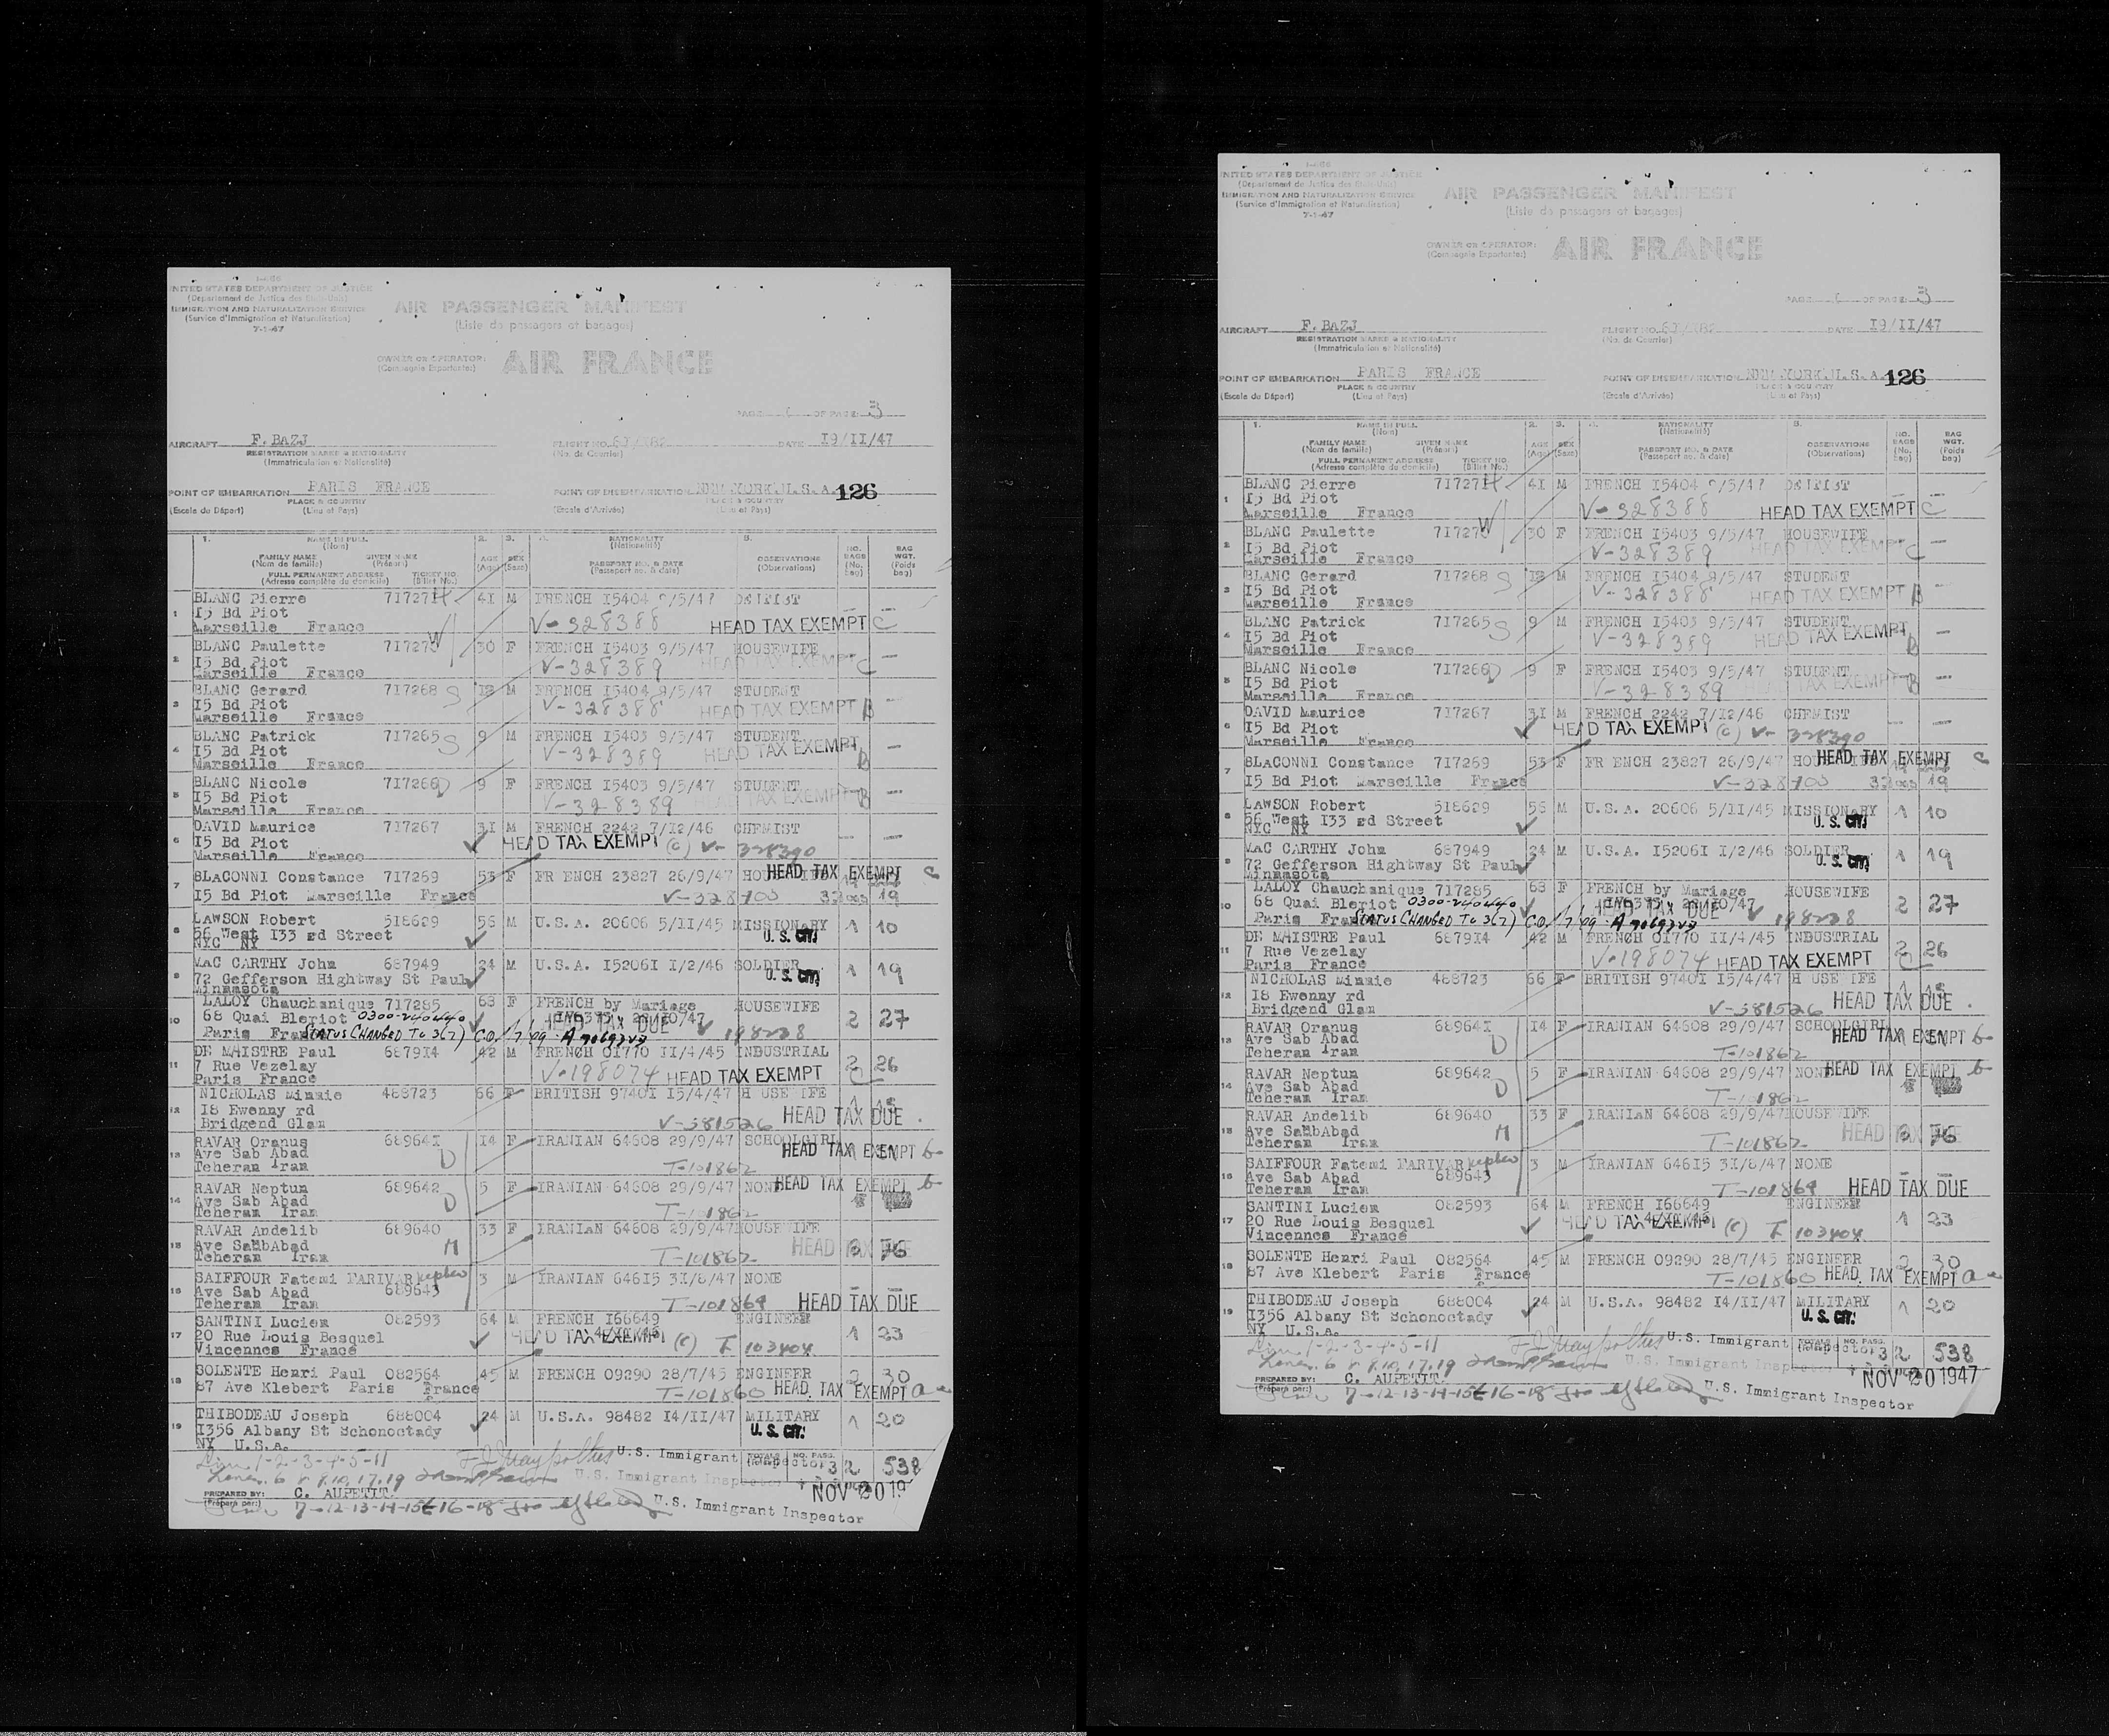 UNITED STATES DEPARTMENT OF JUSTICE
(Departement de Justice des Etats-Unis)
IMMIGRATION AND NATURALIZATION SERVICE
(Service d'Immigration et Naturalisation)
7-1-47
AIR PASSENGER MANIFEST
(Liste de passagers et bagages)
OWNER OR OPERATOR:
(Compagnie Exportante:)
AIR FRANCE
PAGE OF PAGE 3
AIRCRAFT F. BAZJ
REGISTRATION MARKS & NATIONALITY
(Immatriculation et Nationalité)
FLIGHT NO.
(No. de Courrier)
DATE 19/II/47
POINT OF EMBARKATION PARIS FRANCE
(Escale du Départ)
PLACE & COUNTRY
(Lieu et Pays)
POINT OF DISEMBARKATION NEW YORK U.S.A. 126
(Escale d'Arrivée)
PLACE & COUNTRY
(Lieu et Pays)
1. NAME IN FULL (Nom)
FAMILY NAME (Nom de famille) GIVEN NAME (Prénom)
FULL PERMANENT ADDRESS (Adresse complète du domicile) TICKET NO. (Billet No.)
2. AGE (Age)
3. SEX (Sexe)
4. NATIONALITY (Nationalité)
PASSPORT NO. & DATE (Passeport no. & date)
5. OBSERVATIONS (Observations)
NO. BAGS (No. bag)
BAG WGT. (Poids bag)
1 BLANC Pierre 717271 H 41 M FRENCH I5404 9/5/47 DENTIST
I5 Bd Piot
Marseille France V-328388 HEAD TAX EXEMPT C
2 BLANC Paulette 717270 W 30 F FRENCH I5403 9/5/47 HOUSEWIFE
I5 Bd Piot V-328389 HEAD TAX EXEMPT C
Marseille France
3 BLANC Gerard 717268 S 12 M FRENCH I5404 9/5/47 STUDENT
I5 Bd Piot V-328388 HEAD TAX EXEMPT B
Marseille France
4 BLANC Patrick 717265 S 9 M FRENCH I5403 9/5/47 STUDENT
I5 Bd Piot V-328389 HEAD TAX EXEMPT B
Marseille France
5 BLANC Nicole 717266 D 9 F FRENCH I5403 9/5/47 STUDENT
I5 Bd Piot V-328389 HEAD TAX EXEMPT B
Marseille France
6 DAVID Maurice 717267 31 M FRENCH 2242 7/I2/46 CHEMIST
I5 Bd Piot HEAD TAX EXEMPT (C) V- 328390
Marseille France
7 SLACONNI Constance 717269 53 F FR ENCH 23827 26/9/47 HEAD TAX EXEMPT C
I5 Bd Piot Marseille France V-328700 19
8 LAWSON Robert 518629 56 M U.S.A. 20606 5/II/45 MISSIONARY 1 10
56 West I33 rd Street U.S. CIT.
NYC NY
9 MAC CARTHY John 687949 24 M U.S.A. I5206I I/2/46 SOLDIER 1 19
72 Gefferson Hightway St Paul U.S. CIT.
Minnasota
10 LALOY Chauchanique 717285 63 F FRENCH by Mariage HOUSEWIFE
68 Quai Bleriot HEAD TAX DUE 2 27
Paris France STATUS CHANGED TO 3(7) V 198238
11 DE MAISTRE Paul 687914 42 M FRENCH 01770 II/4/45 INDUSTRIAL 2 26
7 Rue Vezelay V-198074 HEAD TAX EXEMPT
Paris France
12 NICHOLAS Minnie 468723 66 F BRITISH 9740I I5/4/47 H USE IFE
I8 Ewenny rd HEAD TAX DUE
Bridgend Glan V-381526
13 RAVAR Oranus 68964I 14 F IRANIAN 64608 29/9/47 SCHOOLGIRL
Ave Sab Abad D HEAD TAX EXEMPT b
Teheran Iran T-101862
14 RAVAR Neptun 689642 5 F IRANIAN 64608 29/9/47 NONE HEAD TAX EXEMPT b
Ave Sab Abad D
Teheran Iran T-101862
15 RAVAR Andelib 689640 33 F IRANIAN 64608 29/9/47 HOUSEWIFE
Ave SabbAbad M HEAD TAX DUE 76
Teheran Iran T-101862
16 SAIFFOUR Fatemi FARIVAR nephew 3 M IRANIAN 64615 31/8/47 NONE
Ave Sab Abad 689643
Teheran Iran T-101864 HEAD TAX DUE
17 SANTINI Lucien 082593 64 M FRENCH I66649 ENGINEER
20 Rue Louis Besquel HEAD TAX EXEMPT (C) T 103404 1 23
Vincennes France
18 SOLENTE Henri Paul 082564 45 M FRENCH 09290 28/7/45 ENGINEER 2 30
87 Ave Klebert Paris France T-101860 HEAD TAX EXEMPT a
19 THIBODEAU Joseph 688004 24 M U.S.A. 98482 I4/II/47 MILITARY 1 20
I356 Albany St Schonoctady U.S. CIT.
NY U.S.A.
1-2-3-4-5-11 U.S. Immigrant Inspector TOTALS NO. PASS. 32 538
6 8, 9, 10, 17, 19 U.S. Immigrant Inspector
PREPARED BY: C. AUPETIT. NOV 20 19
(Préparé par:) 7-12-13-14-15 & 16-18 U.S. Immigrant Inspector
UNITED STATES DEPARTMENT OF JUSTICE
(Departement de Justice des Etats-Unis)
IMMIGRATION AND NATURALIZATION SERVICE
(Service d'Immigration et Naturalisation)
7-1-47
AIR PASSENGER MANIFEST
(Liste de passagers et bagages)
OWNER OR OPERATOR:
(Compagnie Exportante:)
AIR FRANCE
PAGE OF PAGE 3
AIRCRAFT F. BAZJ
REGISTRATION MARKS & NATIONALITY
(Immatriculation et Nationalité)
FLIGHT NO.
(No. de Courrier)
DATE 19/II/47
POINT OF EMBARKATION PARIS FRANCE
(Escale du Départ)
PLACE & COUNTRY
(Lieu et Pays)
POINT OF DISEMBARKATION NEW YORK U.S.A. 126
(Escale d'Arrivée)
PLACE & COUNTRY
(Lieu et Pays)
1. NAME IN FULL (Nom)
FAMILY NAME (Nom de famille) GIVEN NAME (Prénom)
FULL PERMANENT ADDRESS (Adresse complète du domicile) TICKET NO. (Billet No.)
2. AGE (Age)
3. SEX (Sexe)
4. NATIONALITY (Nationalité)
PASSPORT NO. & DATE (Passeport no. & date)
5. OBSERVATIONS (Observations)
NO. BAGS (No. bag)
BAG WGT. (Poids bag)
1 BLANC Pierre 717271 H 41 M FRENCH I5404 9/5/47 DENTIST
I5 Bd Piot
Marseille France V-328388 HEAD TAX EXEMPT C
2 BLANC Paulette 717270 W 30 F FRENCH I5403 9/5/47 HOUSEWIFE
I5 Bd Piot V-328389 HEAD TAX EXEMPT C
Marseille France
3 BLANC Gerard 717268 S 12 M FRENCH I5404 9/5/47 STUDENT
I5 Bd Piot V-328388 HEAD TAX EXEMPT B
Marseille France
4 BLANC Patrick 717265 S 9 M FRENCH I5403 9/5/47 STUDENT
I5 Bd Piot V-328389 HEAD TAX EXEMPT B
Marseille France
5 BLANC Nicole 717266 D 9 F FRENCH I5403 9/5/47 STUDENT
I5 Bd Piot V-328389 HEAD TAX EXEMPT B
Marseille France
6 DAVID Maurice 717267 31 M FRENCH 2242 7/I2/46 CHEMIST
I5 Bd Piot HEAD TAX EXEMPT (C) V- 328390
Marseille France
7 SLACONNI Constance 717269 53 F FR ENCH 23827 26/9/47 HEAD TAX EXEMPT C
I5 Bd Piot Marseille France V-328700 19
8 LAWSON Robert 518629 56 M U.S.A. 20606 5/II/45 MISSIONARY 1 10
56 West I33 rd Street U.S. CIT.
NYC NY
9 MAC CARTHY John 687949 24 M U.S.A. I5206I I/2/46 SOLDIER 1 19
72 Gefferson Hightway St Paul U.S. CIT.
Minnasota
10 LALOY Chauchanique 717285 63 F FRENCH by Mariage HOUSEWIFE
68 Quai Bleriot HEAD TAX DUE 2 27
Paris France STATUS CHANGED TO 3(7) V 198238
11 DE MAISTRE Paul 687914 42 M FRENCH 01770 II/4/45 INDUSTRIAL 2 26
7 Rue Vezelay V-198074 HEAD TAX EXEMPT
Paris France
12 NICHOLAS Minnie 468723 66 F BRITISH 9740I I5/4/47 H USE IFE
I8 Ewenny rd HEAD TAX DUE
Bridgend Glan V-381526
13 RAVAR Oranus 68964I 14 F IRANIAN 64608 29/9/47 SCHOOLGIRL
Ave Sab Abad D HEAD TAX EXEMPT b
Teheran Iran T-101862
14 RAVAR Neptun 689642 5 F IRANIAN 64608 29/9/47 NONE HEAD TAX EXEMPT b
Ave Sab Abad D
Teheran Iran T-101862
15 RAVAR Andelib 689640 33 F IRANIAN 64608 29/9/47 HOUSEWIFE
Ave SabbAbad M HEAD TAX DUE 76
Teheran Iran T-101862
16 SAIFFOUR Fatemi FARIVAR nephew 3 M IRANIAN 64615 31/8/47 NONE
Ave Sab Abad 689643
Teheran Iran T-101864 HEAD TAX DUE
17 SANTINI Lucien 082593 64 M FRENCH I66649 ENGINEER
20 Rue Louis Besquel HEAD TAX EXEMPT (C) T 103404 1 23
Vincennes France
18 SOLENTE Henri Paul 082564 45 M FRENCH 09290 28/7/45 ENGINEER 2 30
87 Ave Klebert Paris France T-101860 HEAD TAX EXEMPT a
19 THIBODEAU Joseph 688004 24 M U.S.A. 98482 I4/II/47 MILITARY 1 20
I356 Albany St Schonoctady U.S. CIT.
NY U.S.A.
1-2-3-4-5-11 U.S. Immigrant Inspector TOTALS NO. PASS. 32 538
6 8, 9, 10, 17, 19 U.S. Immigrant Inspector
PREPARED BY: C. AUPETIT. NOV 20 1947
(Préparé par:) 7-12-13-14-15 & 16-18 U.S. Immigrant Inspector